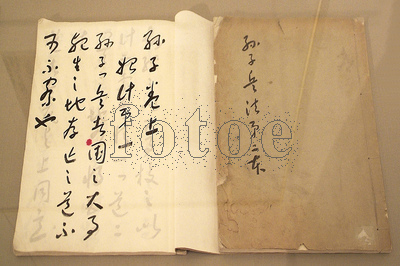 孙子兵法第二本
孙子卷上
始计第一
孙子曰兵者国之大事
死生之地存亡之道不
可不察也
fotoe